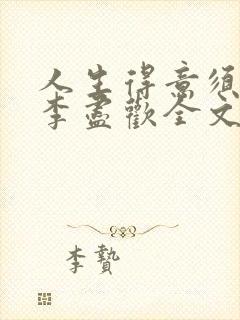 人生得意须
李盡歡全文
李贄